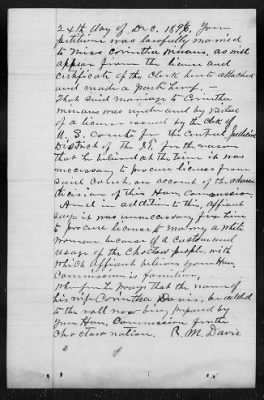 24th day of Dec. 1896. Your
petitioner was lawfully married
to Miss Corintha Minaus, as will
appear from the license and
certificate of the Clerk hereto attached
and made a part hereof. -
That said marriage to Corintha
Minaus was under and by virtue
of a license issued by the clk of
U. S. courts for the Central Judicial
District of the I.T. for the reason
that he believed at the time it was
necessary to procure license from
said Court, on account of the
decision of this Hon. Commission
And in addition to this, affiant
says it was unnecessary for him
to procure license to marry a white
woman because of a custom and
usage of the Choctaw people, with
which affiant believes your Hon.
Commission is familiar,
Wherefore he prays that the name of
his wife Corintha Davis, be added
to the roll now being prepared by
your Hon. Commission for the
Choctaw nation. R. M. Davis